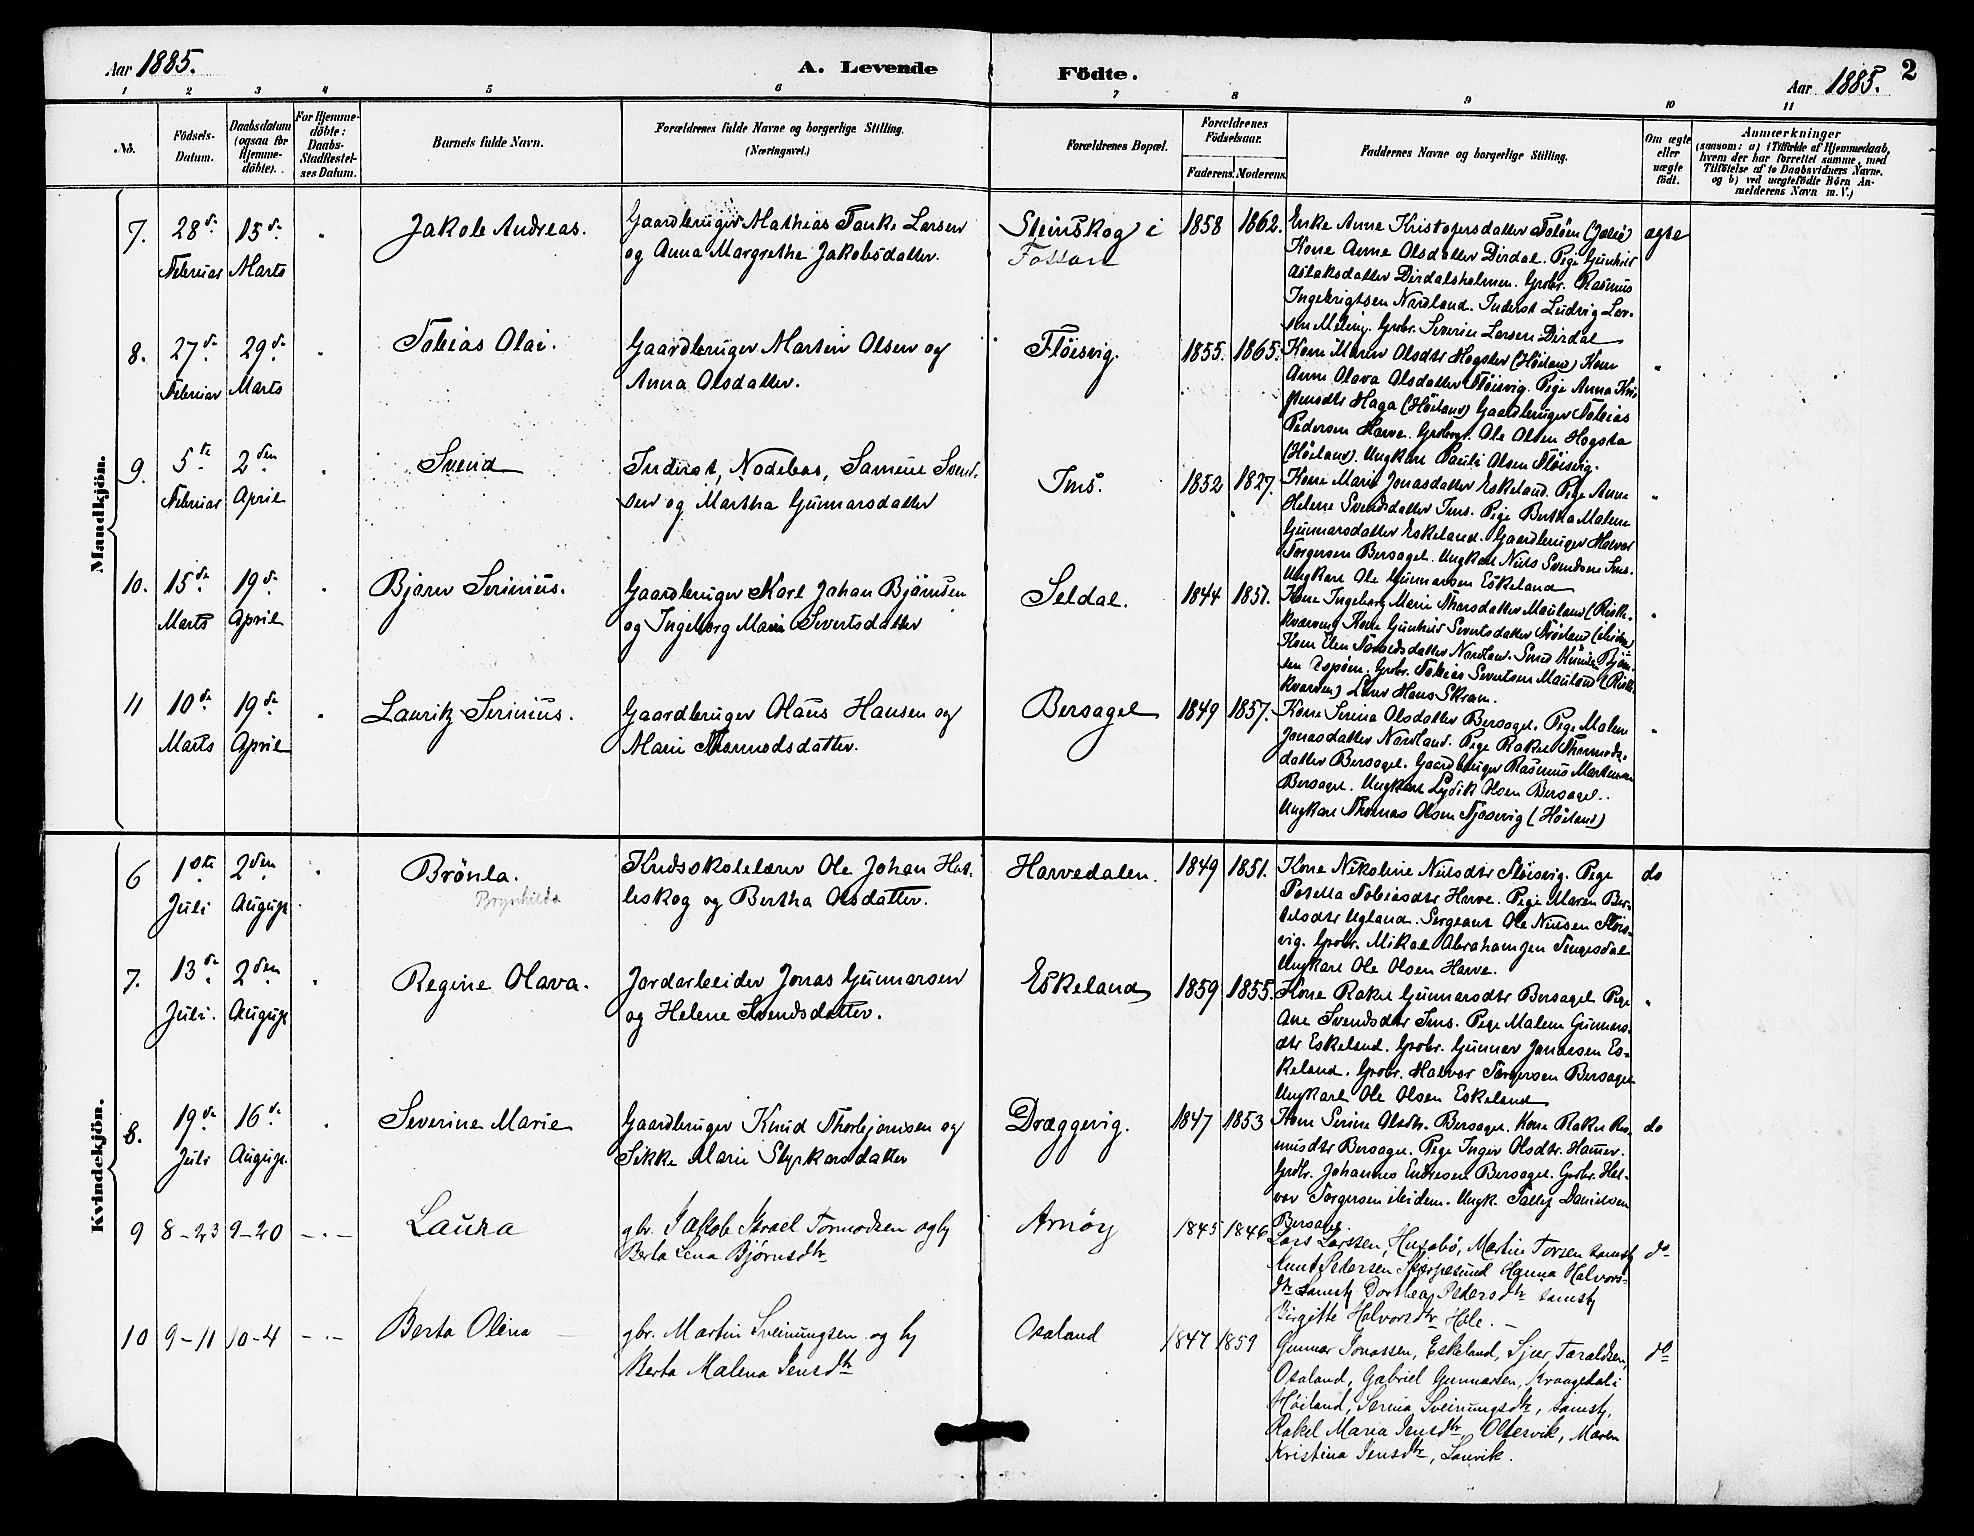 Aar 1885.
A. Levende Födte.
Aar 1885.
2
1 2 3 4 5 6 7 8 9 10 11
No.
Födsels-Datum.
Daabsdatum (ogsaa for Hjemmedöbte).
For Hjemmedöbte: Daabs-Stadfæstelses Datum.
Barnets fulde Navn.
Forældrenes fulde Navne og borgerlige Stilling. (Næringsvei.)
Forældrenes Bopæl.
Forældrenes Födselsaar.
Faderens. Moderens.
Faddernes Navne og borgerlige Stilling.
Om ægte eller uægte födt.
Anmærkninger
(saasom: a) i Tilfælde af Hjemmedaab, hvem der har forrettet samme, med Tilföielse af to Daabsvidners Navne, og b) ved uægtefödte Börn Anmelderens Navn m. V.)
Mandkjön.
7. 28de Februar 15de Marts
Jakob Andreas.
Gaardbruger Mathias Tanke Larsen
og Anna Margrethe Jakobsdatter.
Steinskog i
Fossan
1858 1862.
Enke Anne Kristofersdatter
Kone Anne Olsdatter Dirdal. Pige Gunhild
Aslaksdatter Dirdalsholmen. Grbr. Rasmus
Ingebrigtsen Nordland. Inderst Ludvig Lar-
sen Meling. Grbr. Severin Larsen Dirdal
ægte
8. 27de Februar 29de Marts
Tobias Olai.
Gaardbruger Martin Olsen og
Anna Olsdatter.
Flöisvig.
1855. 1865.
Kone Maren Olsdtr (Höiland) Kone
Anne Olava Olsdatter Flöisvig. Pige Anna
Haga (Höiland) Gaardbruger Tobias
Pedersen Harve. Ole Olsen
(Höiland). Ungkarl Pauli Olsen Flöisvig.
9. 5te Februar 2den April
Svend
Inderst, Nodebas, Samuel Svend-
sen og Martha Gunnarsdatter
Ims.
1852 1827.
Kone Mari Jonasdatter Eskeland. Pige Anne
Helene Svendsdatter Ims. Pige Bertha Malene
Gunnarsdatter Eskeland. Gaardbruger Halvor
Torgersen Bersagel. Ungkarl Nils Svendsen Ims.
Ungkarl Ole Gunnarsen Eskeland
10. 15de Marts 19de April
Bjarn Serinius.
Gaardbruger Karl Johan Björnsen
og Ingeborg Marie Severtsdatter
Seldal.
1844 1851.
Kone Ingeborg Marie Mauland (Riske-
kværven) Kone Gunhild Severtsdatter
Kone Elen Nordland.
Grbr. Tobias Severtsen Mauland (Riske
kværven) Hans Skran.
11 10de Marts 19de April
Lauritz Serinius.
Gaardbruger Olaus Hansen og
Marie Thormodsdatter.
Bersagel
1849 1857.
Kone Serina Olsdatter Bersagel. Pige Malene
Jonasdatter Nordland. Pige Rakel Thormods-
datter Bersagel. Gaardbruger Rasmus Martinsen
Bersagel. Ungkarl Lydik Olsen Bersagel.
Ungkarl Thomas Olsen (Höiland)
Kvindekjön.
6 1ste Juli 2den August
Brönla.
Brynhilda
Kredsskolelærer Ole Johan Hal-
leskog og Bertha Olsdatter.
Harvedalen.
1849 1851.
Kone Nikoline Nilsdtr Flöisvig. Pige
Tobiasdtr Harve. Pige Maren Ber-
telsdtr Ugland. Sergeant Ole Nilsen Flöis-
vig. Grbr. Mikal Abrahamsen Tengesdal
Ungkarl Ole Olsen Harve.
do
7. 13de Juli. 2den August
Regine Olava.
Jordarbeider Jonas Gunnarsen
og Helene Svendsdatter.
Eskeland
1859 1855.
Kone Rakel Gunnarsdtr Bersagel Pige
Ane Svendsdtr Ims. Pige Malene Gunnars-
dtr Eskeland. Grbr. Gunnar Jonassen Es-
keland. Grbr. Halvor Torgersen Bersagel
Ungkarl Ole Olsen Eskeland
8. 19de Juli 16de August.
Severine Marie
Gaardbruger Knud Thorbjörnsen og
Sikke Marie Styrkarsdatter
Dræggevig.
1847 1853
Kone Serine Olsdtr. Bersagel. Kone Rakel Ras-
musdtr Bersagel. Pige Inger Olsdtr. Hauer.
Grdbr. Johannes Endresen Bersagel. Grbr. Hal-
vor Torgersen ibidem. Ungk. Tallef Danielsen
Bersagel.
do
9 8-23 9-20
Laura
gbr. Jakob Israel Tormodsen og hy
Berta Lena Bjørnsdtr
Arnøy
1845 1846
Lars Larssen, Husabø, Martin Torsen samsty
Knut Pedersen Skjørpesund Hanna Halvors-
dtr samsty Dorthea Petersdtr samsty
Birgitte Halvorsdtr Hole.
do
10 9-11 10-4
Berta Olina
gbr. Martin Sveinungsen og hy
Berta Malena Jensdtr
Osaland
1847 1859
Gunnar Jonassen, Eskeland, Sjur Taraldsen,
Osaland, Gabriel Gunnarsen, Kraagedal i
Høiland, Serina Sveinungsdtr, samsty,
Rakel Maria Jensdtr, Oltesvik, Maren
Kristina Jensdtr, Lauvik.
do